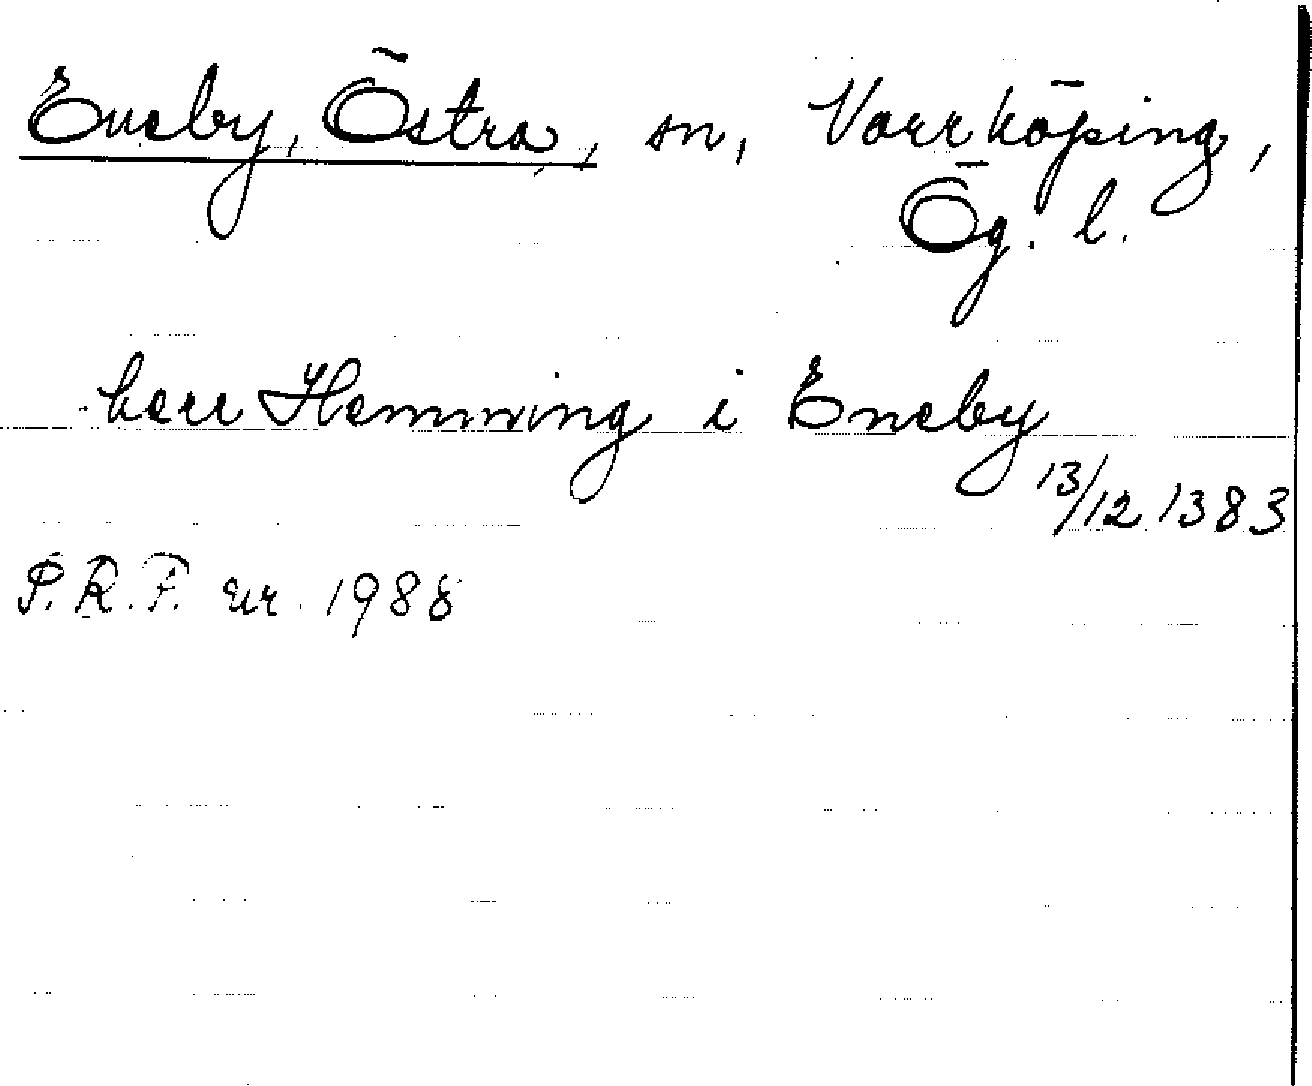 Eneby, Östra, sn, Norrköping,
Ög. l.
herr Hemming i Eneby
13/12 1383
P.R.F. nr. 1988